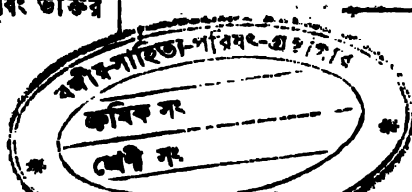 বং ভক্তির
বঙ্গীয়-সাহিত্য-পরিষৎ-গ্রন্থাগার
ক্রমিক সং
শ্রেণী সং